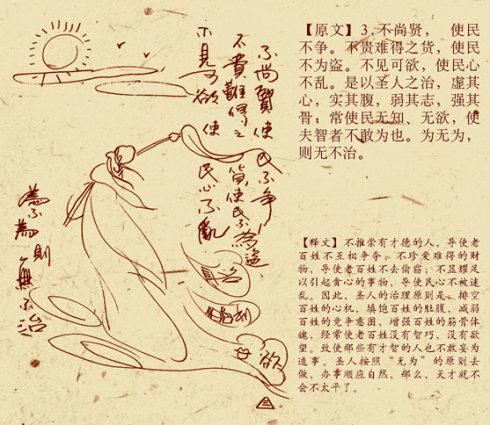 【原文】3.不尚贤， 使民
不争。不贵难得之货，使民
不为盗。不见可欲，使民心
不乱。是以圣人之治，虚其
心，实其腹，弱其志，强其
骨；常使民无知、无欲，使
夫智者不敢为也。为无为，
则无不治。
【释文】不推崇有才德的人，导使老
百姓不互相争夺，不珍爱难得的财
物，导使老百姓不去偷窃；不显耀足
以引起贪心的事物，导使民心不被迷
乱。因此，圣人的治理原则是：排空
百姓的心机，填饱百姓的肚腹，减弱
百姓的竞争意图，增强百姓的筋骨体
魄，经常使老百姓没有智巧，没有欲
望。致使那些有才智的人也不敢妄为
造事。圣人按照“无为”的原则去
做，办事顺应自然，那么，天才就不
会不太平了。
不尚賢使民不争
不貴難得之貨使民不為盜
不見可欲使民心不亂
為不為
則無不治
名
欲